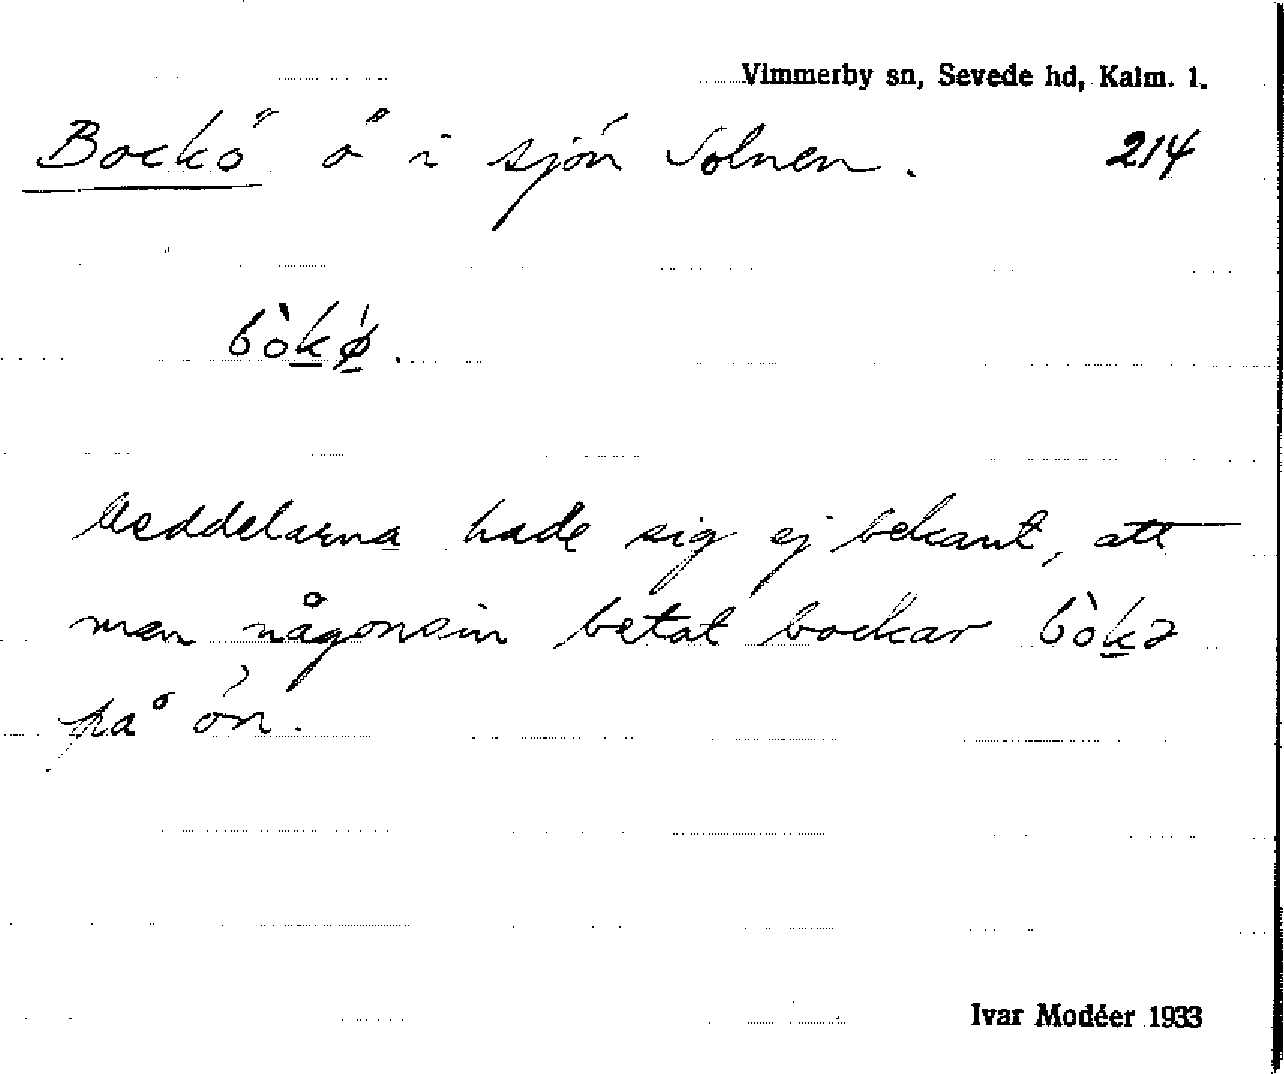 Vimmerby sn, Sevede hd, Kalm. l.
Bockö ö i sjön Solnen. 214
bòkø̀.
Meddelarna hade sig ej bekant, att
man någonsin betat bockar bòka
på ön.
Ivar Modéer 1933